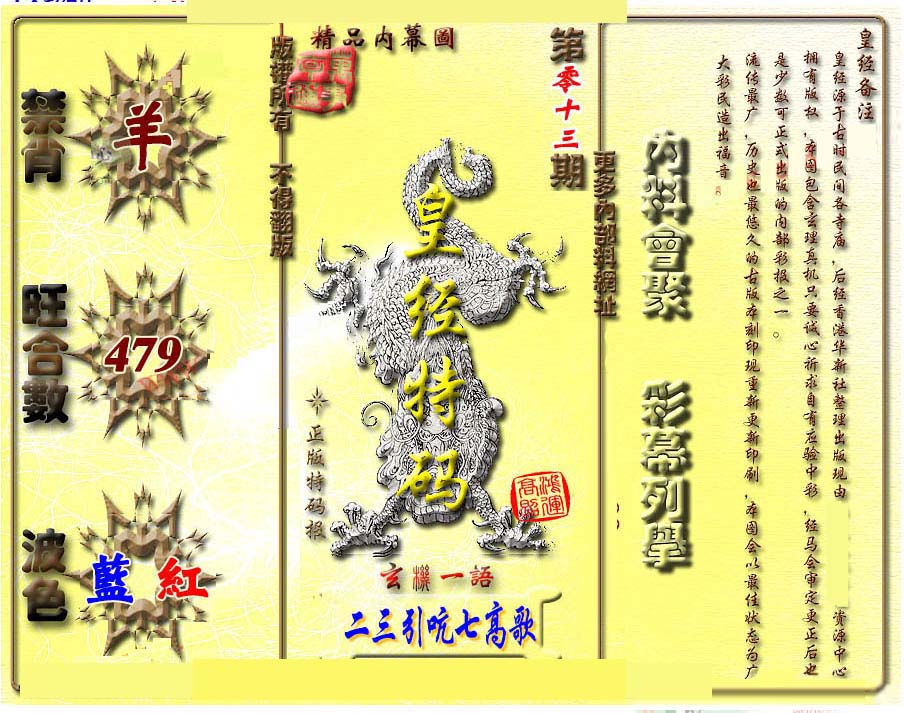 皇经备注
皇经源于古时民间各寺庙，后经香港华新社整理出版现由
资源中心
拥有版权，本图包含玄理真机只要诚心祈求自有应验中彩，经马会审定更正后也
是少数可正式出版的内部彩报之一。
流传最广，历史也最悠久的古版本刻印现重新更新印刷，本图会以最佳状态为广
大彩民造出福音
内料會聚
彩幕列舉
更多内部料網址
第零十三期
精品内幕圖
版權所有
不得翻版
皇经特码
正版特码报
鴻運
高照
玄機一語
二三引吭七高歌
禁肖
羊
旺合數
479
波色
藍 紅